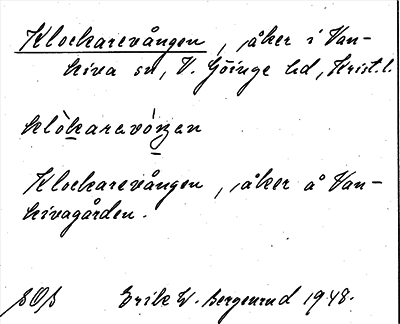 Klockarevången, åker i Van-
kiva sn, V. Göinge hd, Krist. l.
klòkarevóŋen
Klockarevången, åker å Van-
kivagården.
Erik W. Bergenrud 1948.